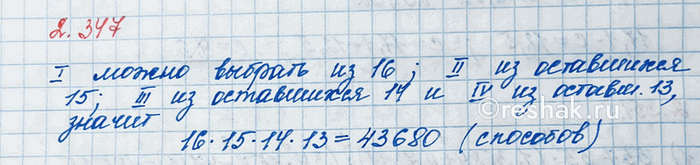 2. 347
I можно выбрать из 16; II из оставшихся
15; III из оставшихся 14 и IV из оставш. 13,
значит
16·15·14·13=43680 (способов)
reshak.ru